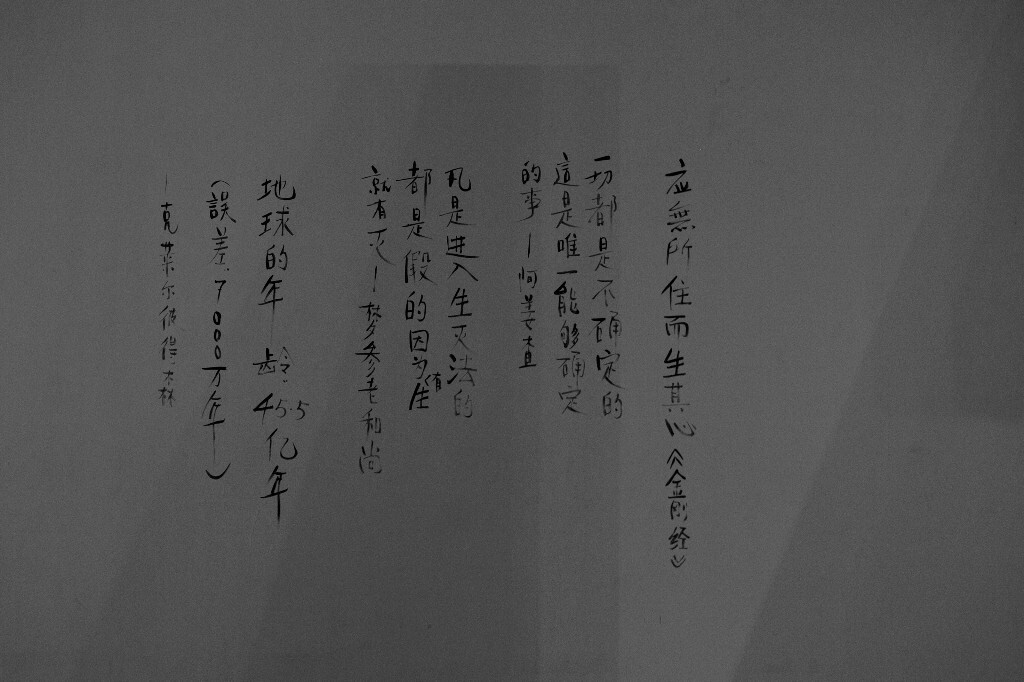 应無所住而生其心《金剛经》
一切都是不确定的
這是唯一能够确定
的事—阿姜查
凡是进入生灭法的
都是假的因为有生
就有灭—梦参老和尚
地球的年龄45.5亿年
(誤差7000万年)
—克莱尔彼得森